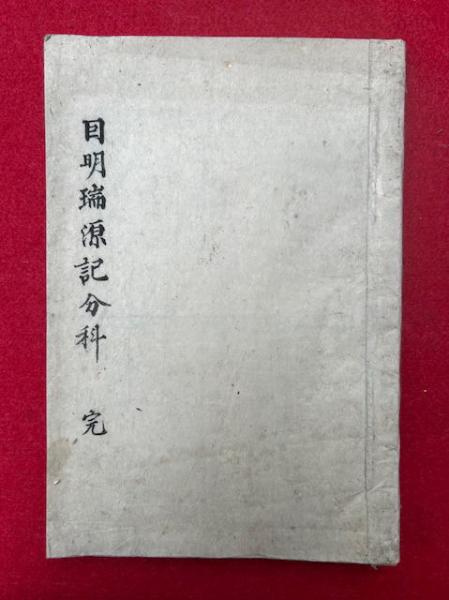 目明瑞源記分科 完